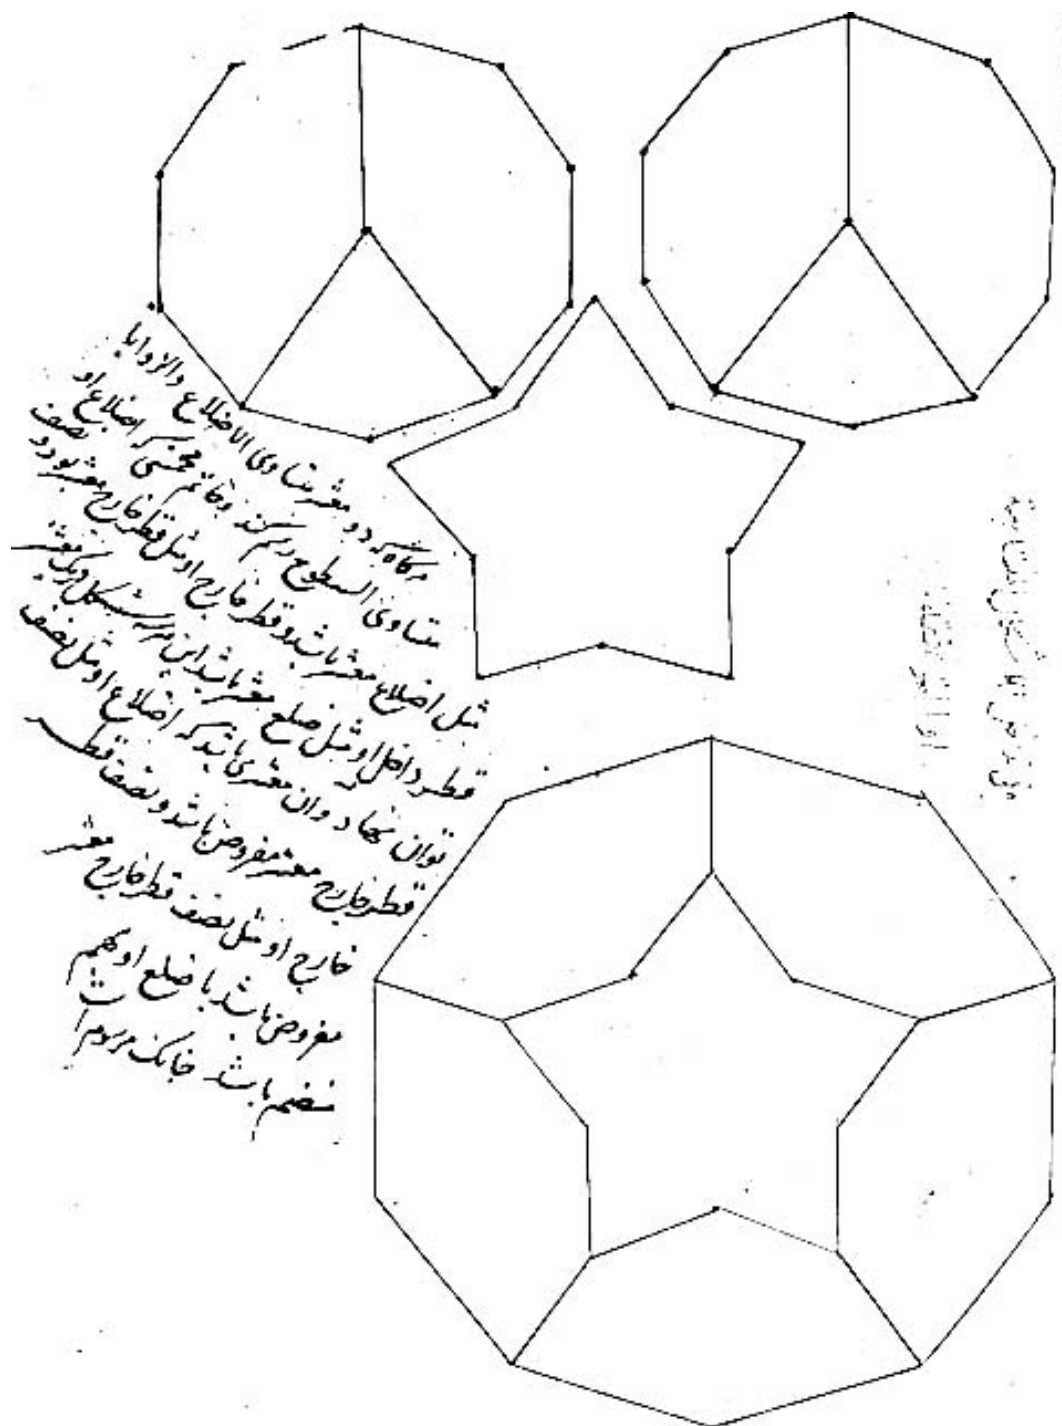 هرگاه که دو معشر متساوی الاضلاع والزوایا
متساوی السطوح رسم کنند و خاتم مخمسی که اضلاع او
مثل اضلاع معشر باشد و قطر خارج او مثل قطر خارج معشر بود و نصف
قطر داخل او مثل ضلع معشر باشد این هر سه شکل در یک معشر
توان نهاد و آن معشری باشد که اضلاع او مثل نصف
قطر خارج معشر مفروض باشد و نصف قطر
خارج او مثل نصف قطر خارج معشر
مفروض باشد با ضلع او بهم
منضم باشد چنانک مرسوم است